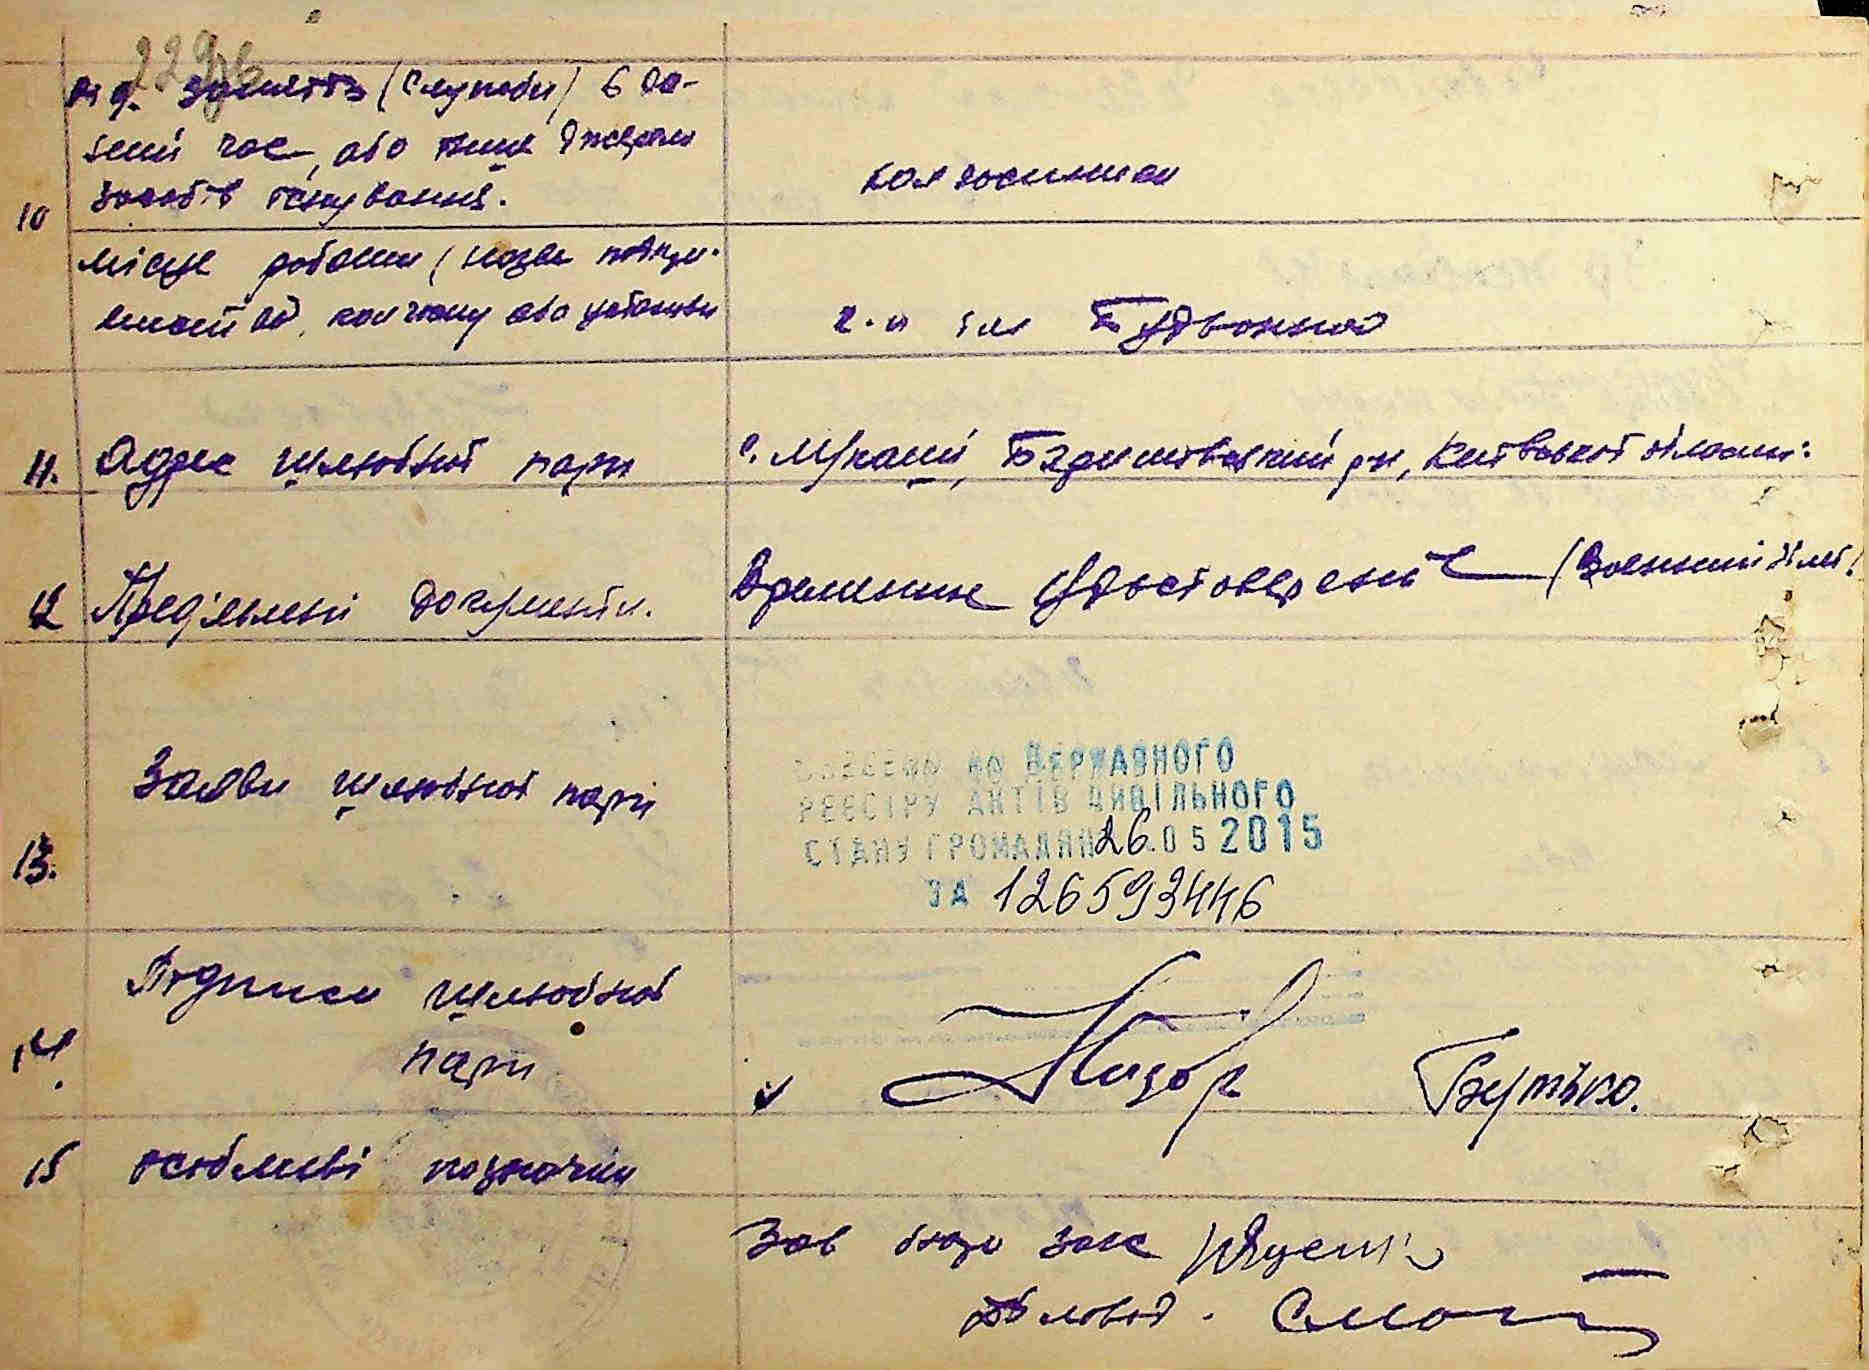 229зв
Рід заняття (служби) в да-
ний час, або инше джерело
10 засобів існування.
колгоспники
місце роботи (назва підпри-
ємства, колгоспу або установи
к-п ім Будьонного
11. Адрес шлюбної пари
с. Баришівський р-н, Київської області.
12 Пред'явлені документи.
Временне удостоверение (Воєнний біле.)
13. Заяви шлюбної пари
ВВЕДЕНО ДО ДЕРЖАВНОГО
РЕЄСТРУ АКТІВ ЦИВІЛЬНОГО
СТАНУ ГРОМАДЯН 26.05 2015
ЗА 126593446
14. Підписи шлюбної
пари
Бутько.
15 особливі позначки
Зав бюро Загс
Діловод.